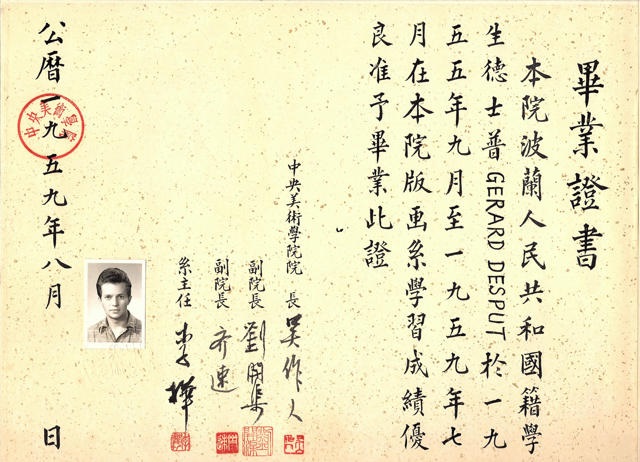 畢業證書
本院波蘭人民共和國籍學
生德士普GERARD DESPUT於一九
五五年九月至一九五九年七
月在本院版画系學習成績優
良准予畢業此證
中央美術學院院長 吴作人
副院長 劉開渠
副院長 齐速
系主任 李樺
公曆一九五九年八月 日
中央美術學院